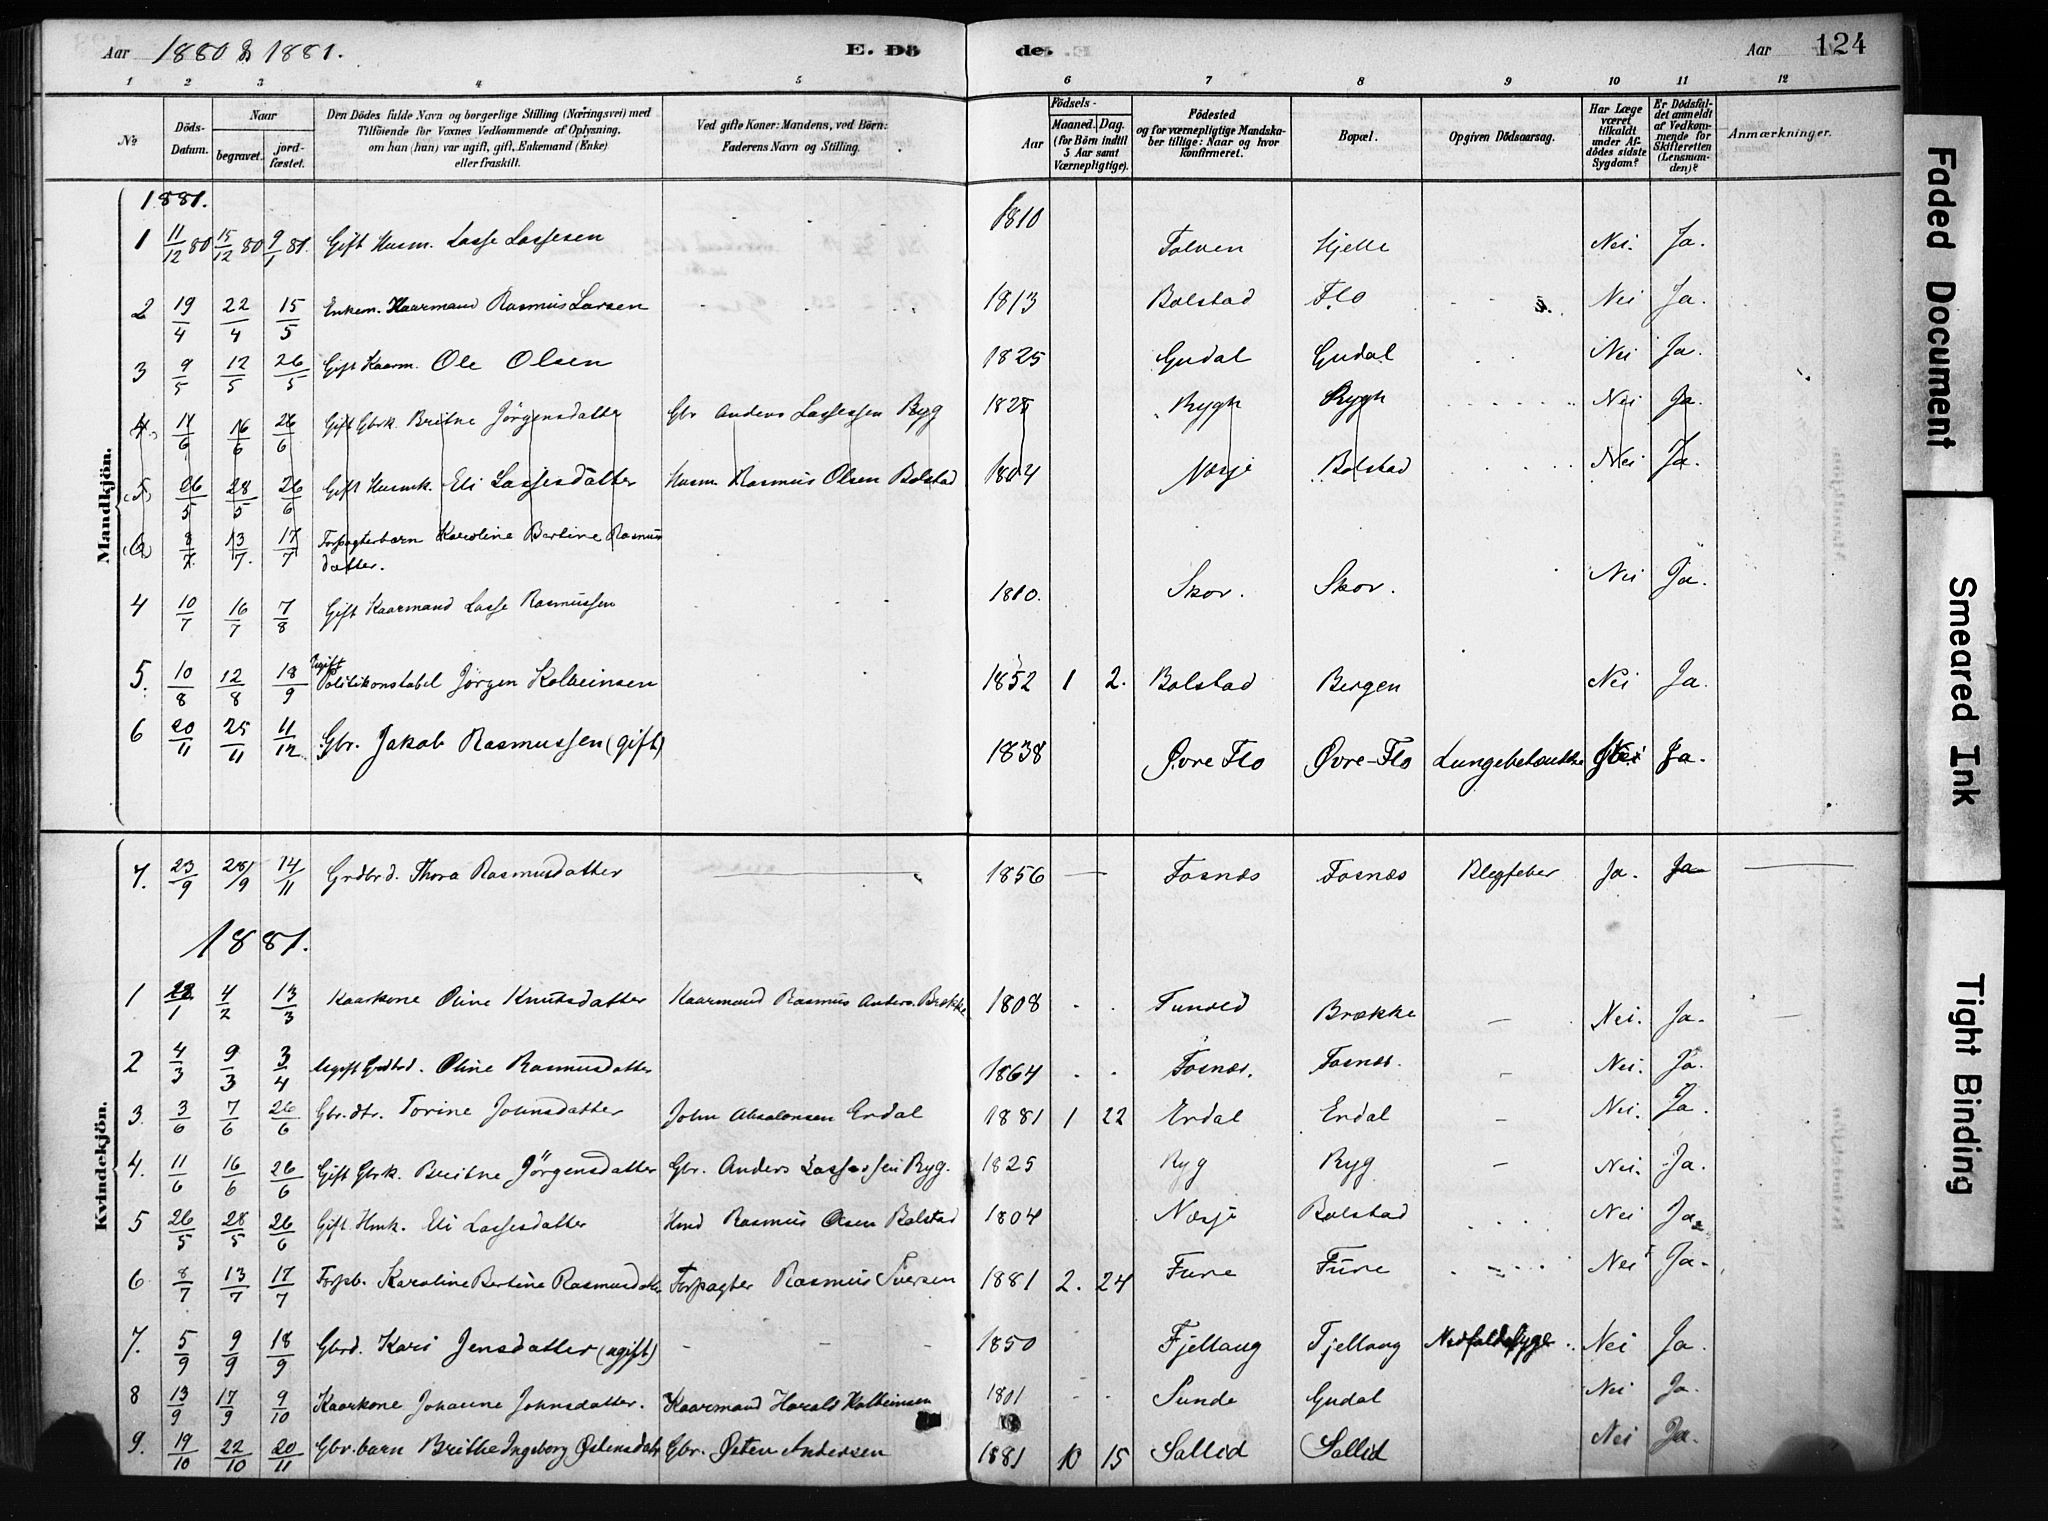 Aar 1880 & 1881. E. Döde. Aar 124
1 2 3 4 5 6 7 8 9 10 11 12
No. Döds-Datum. Naar begravet. jordfæstet. Den Dödes fulde Navn og borgerlige Stilling (Næringsvei) med Tilföiende for Voxnes Vedkommende af Oplysning, om han (hun) var ugift, gift, Enkemand (Enke) eller fraskilt. Ved gifte Koner: Mandens, ved Börn: Faderens Navn og Stilling. Födsels- Aar Maaned. Dag. (for Börn indtil 5 Aar samt Værnepligtige). Födested og for værnepligtige Mandskaber tillige: Naar og hvor konfirmeret. Bopæl. Opgiven Dödsaarsag. Har Læge været tilkaldt under Afdödes sidste Sygdom? Er Dödsfaldet anmeldt af Vedkommende for Skifteretten (Lensmanden)? Anmærkninger.
Mandkjön.
1881.
1 11/12 80 15/12 80 9/1 81. Gift Husm. Lasse Lassesen 1810 Tolven Hjelle Nei. Ja.
2 19/4 22/4 15/5 Enkem. Kaarmand Rasmus Larsen 1813 Bolstad Flo Nei Ja.
3 9/5 12/5 26/5 Gift Kaarm. Ole Olsen 1825 Gudal Gudal Nei Ja.
4 11/6 16/6 26/6 Gift Gbrk. Britne Jörgensdatter Gbr Anders Lassessen Ryg 1825 Rygh Rygh Nei Ja.
5 26/5 28/5 26/6 Gift Husmk. Eli Lassesdatter Husm. Rasmus Olsen Bolstad 1804 Nesje Bolstad Nei Ja.
6 8/7. 13/7. 17/7 Forpagterbarn Karoline Bertine Rasmus
datter.
4 10/7 16/7 7/8 Gift Kaarmand Lasse Rasmussen 1810. Skor. Skor. Nei Ja.
5. 10/8 12/8 18/9 Ugift Politikonstabel Jörgen Kolbeinsen 1852 1 2. Bolstad Bergen Nei Ja.
6 20/11 25/11 11/12 Gbr. Jakob Rasmussen (gift) 1838 Øvre Flo Øvre-Flo Nei Ja.
Kvindekjön.
7. 23/9 28/9 14/11 Grdbrd. Thora Rasmusdatter 1856 — Fosnæs Fosnæs Blegfeber Ja. Ja
1881.
1 28/1 4/2 13/3 Kaarkone Oline Knutsdatter Kaarmand Rasmus Anders. Brække 1808 Brække – Nei. Ja.
2 4/3 9/3 3/4 Ugift Grdbrd. Oline Rasmusdatter 1864 Fosnæs. Fosnæs. – Nei. Ja.
3. 3/6 7/6 26/6 Gbr.dtr. Torine Johnsdatter John Absalonsen Erdal 1881 1 22 Erdal Erdal – Nei. Ja.
4. 11/6 16/6 26/6 Gift Gbrk. Britne Jörgensdatter Gbr. Anders Lassessen Ryg. 1825 Ryg Ryg – Nei. Ja.
5 26/5 28/5 26/6 Gift Hmk. Eli Lassesdatter Hmd Rasmus Olsen Bolstad 1804 Nesje Bolstad Nei Ja
6 8/7 13/7 17/7 Forpb. Karoline Bertine Rasmusdatter Forpagter Rasmus Iversen 1881 2. 24 Fure Fure Nei Ja.
7. 5/9 9/9 18/9 Gbrd. Kari Jensdatter (ugift) – – – 1850 Fjellaug Fjellaug Nedfaldssyge Nei Ja.
8 13/9 17/9 9/10 Kaarkone Johanne Johnsdatter. Kaarmand Harald Kolbeinsen 1801 Sunde Gudal Nei Ja.
9. 19/10 22/10 20/11 Gbr. barn Brithe Ingeborg Østensdatr Gbr. Østen Andersen 1881 10 15 Sollid Sollid Nei Ja.
Faded Document
Smeared Ink
Tight Binding